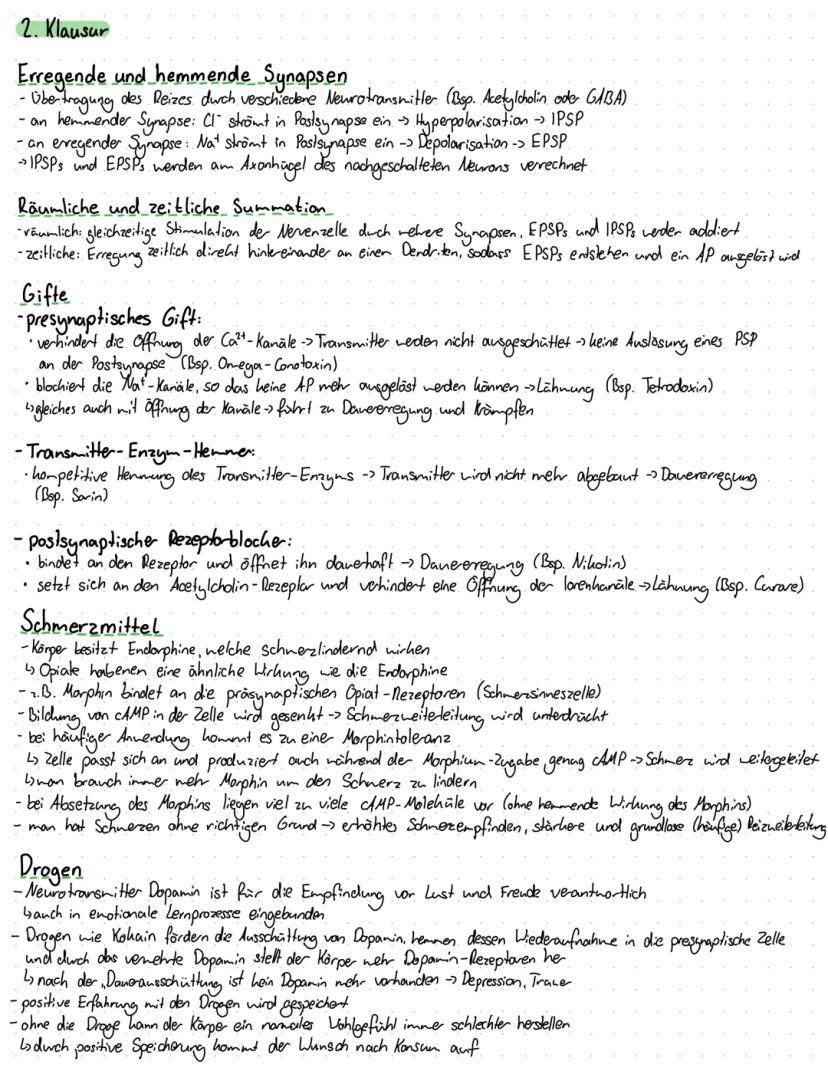 2. Klausur
Erregende und hemmende Synapsen
- Übertragung des Reizes durch verschiedene Neurotransmitter (Bsp. Acetylcholin oder GABA)
- an hemmender Synapse: Cl⁻ strömt in Postsynapse ein → Hyperpolarisation → IPSP
- an erregender Synapse: Na⁺ strömt in Postsynapse ein -> Depolarisation -> EPSP
→ IPSPs und EPSPs werden am Axonhügel des nachgeschalteten Neurons verrechnet
Räumliche und zeitliche Summation
- räumlich: gleichzeitige Stimulation der Nervenzelle duch mehere Synapsen, EPSPs und IPSPs werden addiert
- zeitliche: Erregung zeitlich direkt hintereinander an einem Dendriten, sodass EPSPs entstehen und ein AP ausgelöst wird
Gifte
- presynaptisches Gift:
• verhindert die Öffnung der Ca²⁺-Kanäle -> Transmitter werden nicht ausgeschüttet -> keine Auslösung eines PSP
an der Postsynapse (Bsp. Omega-Conotoxin)
• blockiert die Na⁺-Kanäle, so das keine AP mehr ausgelöst werden können → Lähmung (Bsp. Tetrodoxin)
↳ gleiches auch mit Öffnung der Kanäle → führt zu Dauererregung und Krämpfen
- Transmitter-Enzym-Hemmer:
• kompetitive Hemmung des Transmitter-Enzyms -> Transmitter wird nicht mehr abgebaut → Dauererregung
(Bsp. Sarin)
- postsynaptischer Rezeptorblocker:
• bindet an den Rezeptor und öffnet ihn dauerhaft → Dauererregung (Bsp. Nikotin)
• setzt sich an den Acetylcholin-Rezeptor und verhindert eine Öffnung der Ionenkanäle → Lähmung (Bsp. Curare)
Schmerzmittel
- Körper besitzt Endorphine, welche schmerzlindernd wirken
↳ Opiate habenen eine ähnliche Wirkung wie die Endorphine
- z.B. Morphin bindet an die präsynaptischen Opiat-Rezeptoren (Schmerzsinneszelle)
- Bildung von cAMP in der Zelle wird gesenkt → Schmerzweiterleitung wird unterdrückt
- bei häufiger Anwendung kommt es zu einer Morphintoleranz
↳ Zelle passt sich an und produziert auch während der Morphium-Zugabe genug cAMP -> Schmerz wird weitergeleitet
↳ man brauch immer mehr Morphin um den Schmerz zu lindern
- bei Absetzung des Morphins liegen viel zu viele cAMP-Moleküle vor (ohne hemmende Wirkung des Morphins)
- man hat Schmerzen ohne richtigen Grund → erhöhtes Schmerzempfinden, stärkere und grundlose (häufige) Reizweiterleitung
Drogen
- Neurotransmitter Dopamin ist für die Empfindung von Lust und Freude verantwortlich
↳ auch in emotionale Lernprozesse eingebunden
- Drogen wie Kokain fördern die Ausschüttung von Dopamin, hemmen dessen Wiederaufnahme in die presynaptische Zelle
und durch das vermehrte Dopamin stellt der Körper mehr Dopamin-Rezeptoren her
↳ nach der „Dauerausschüttung ist kein Dopamin mehr vorhanden → Depression, Trauer
- positive Erfahrung mit den Drogen wird gespeichert
- ohne die Droge kann der Körper ein normales Wohlgefühl immer schlechter herstellen
↳ durch positive Speicherung kommt der Wunsch nach Konsum auf